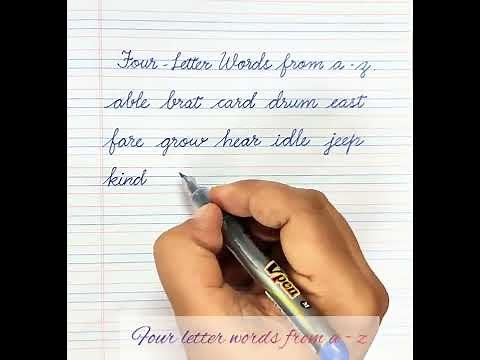 Four-Letter Words from a-z
able brat card drum east
fare grow hear idle jeep
kind
Vpen
M
Four letter words from a - z